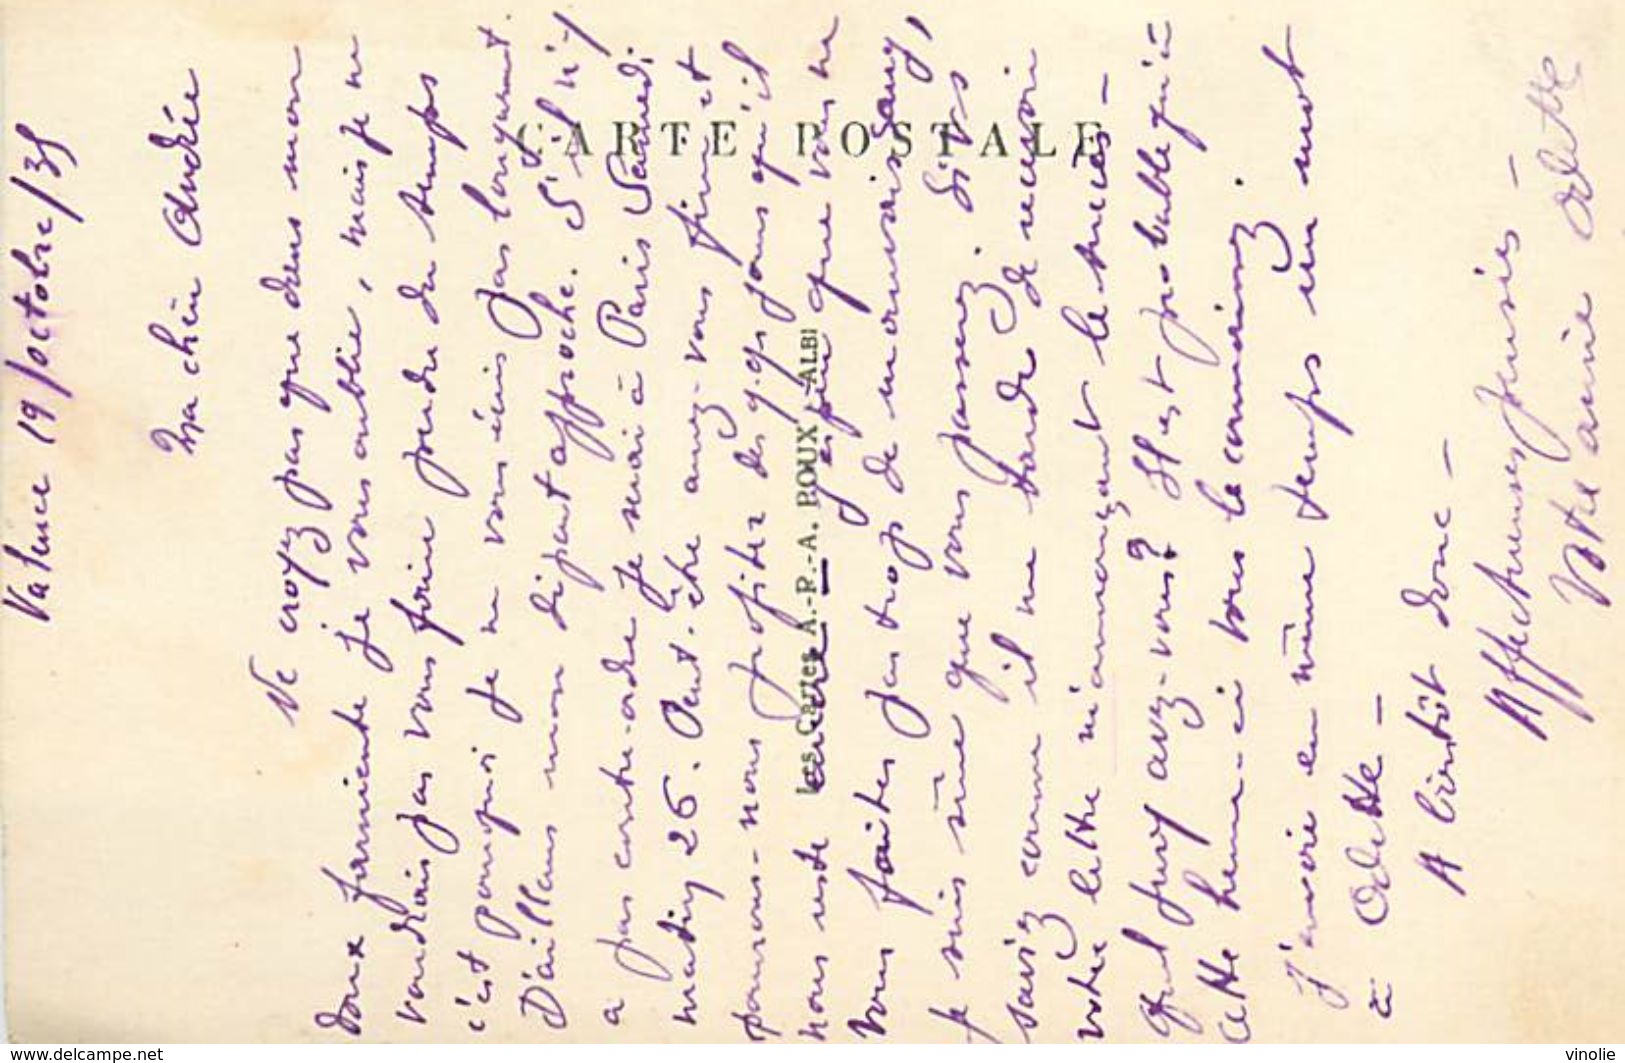 Valence 19/octobre/35
Ma chère Andrée
Ne croyez pas que dans mon
doux farniente je vous oublie, mais je ne
voudrais pas vous faire perdre du temps
c'est pourquoi je ne vous écris pas longuement.
D'ailleurs mon départ approche. S'il n'y
a pas contre-ordre je serai à Paris Samedi
matin 26. Peut-être aurez-vous fini et
pourrons-nous profiter des qqs jours qu'il
nous reste encore. J'espère que vous ne
vous faites pas trop de mauvais sang,
je suis sûre que vous passerez. Si vous
saviez comme il me tarde de recevoir
votre lettre m'annonçant le succès -
Quel jury avez-vous? Il est probable qu'à
cette heure-ci vous le connaissez.
J'envoie en même temps un mot
à Odette -
A bientôt donc -
Affectueuses pensées -
Votre amie Odette
CARTE POSTALE
Les Cartes A.-P.-A. POUX - ALBI
www.delcampe.net
vinolie